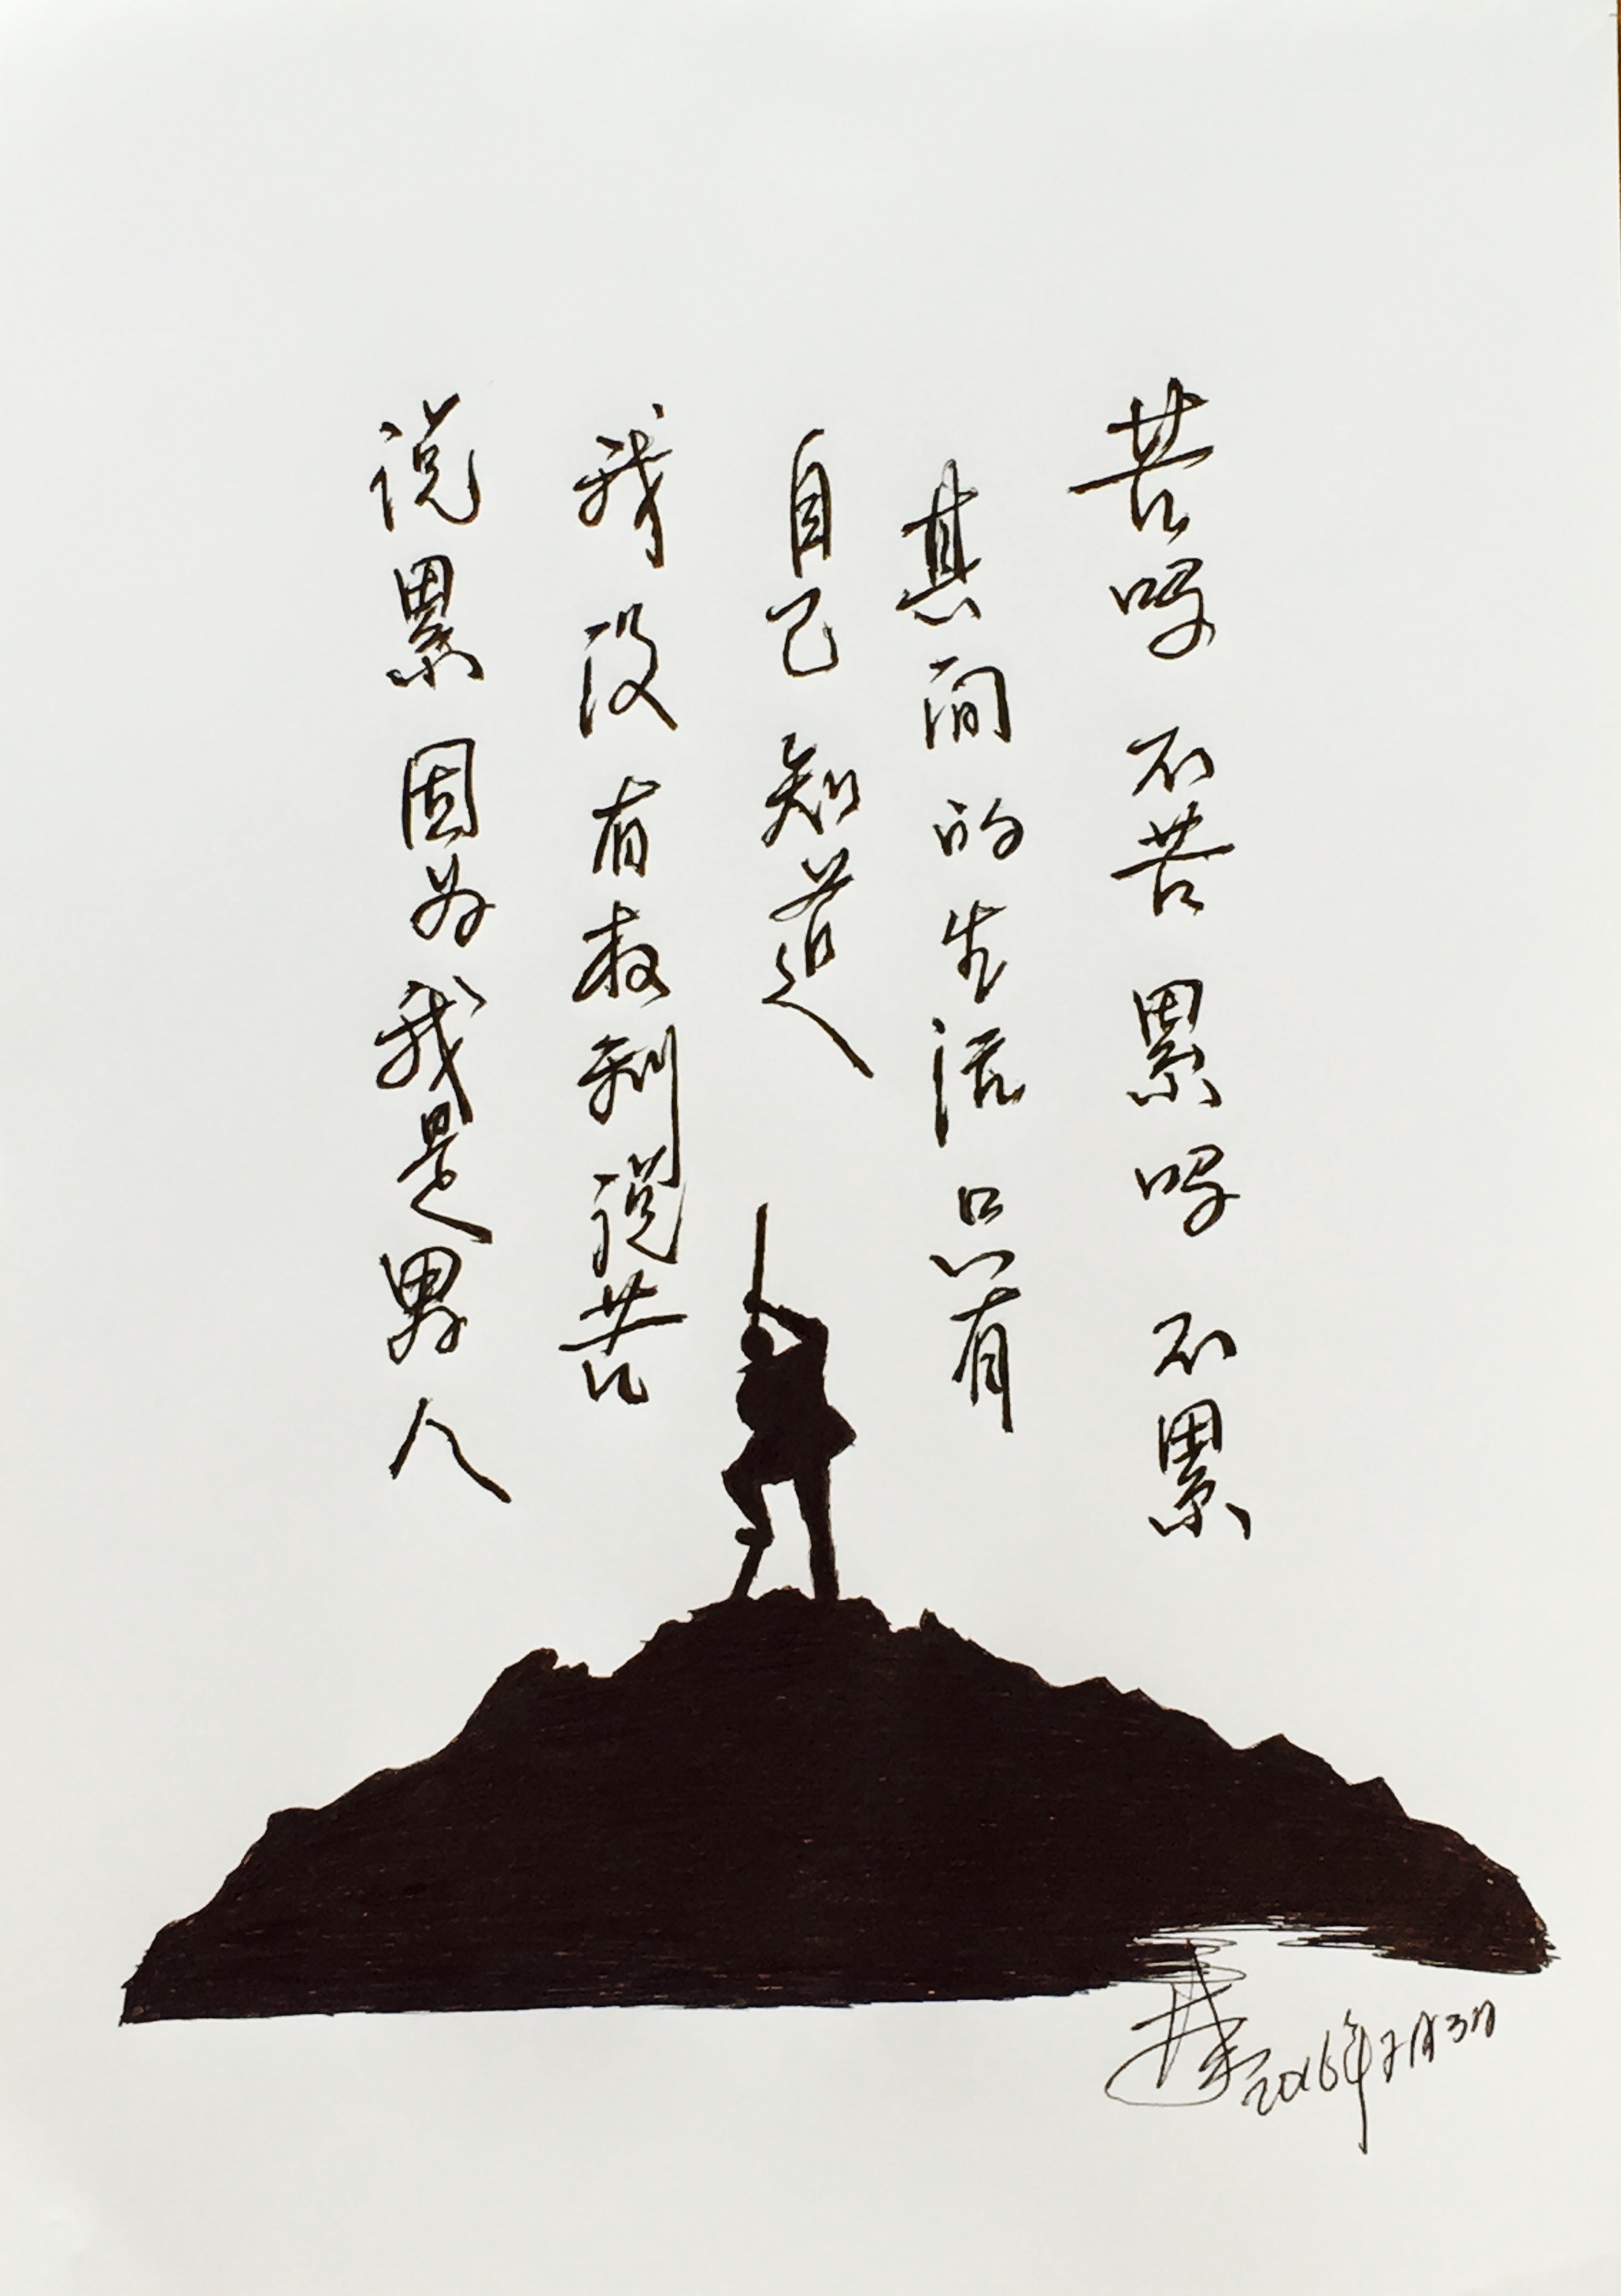 苦吗 不苦 累吗 不累
其间的生活 只有
自己知道
我没有权利说苦
说累因为我是男人
2016年7月3日